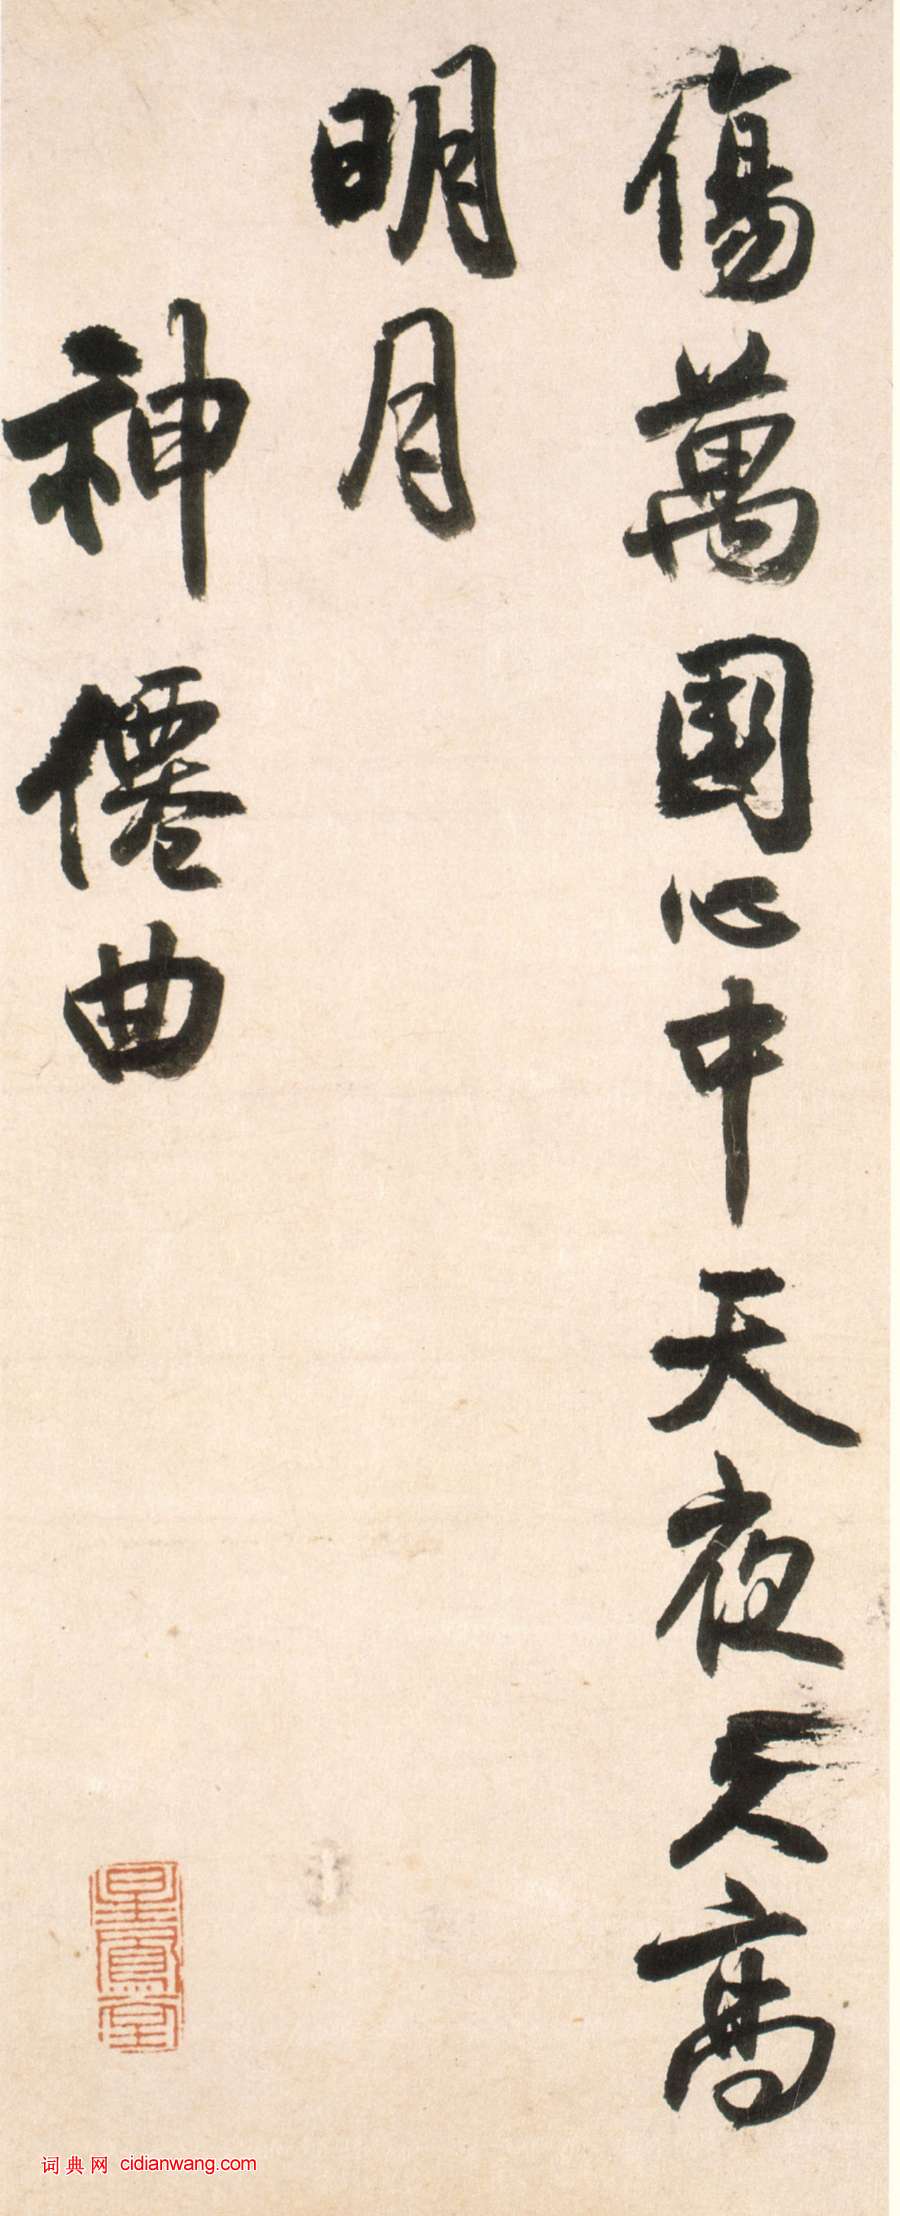 傷萬國心中天夜久高
明月
神僊曲
詞典网 cidianwang.com